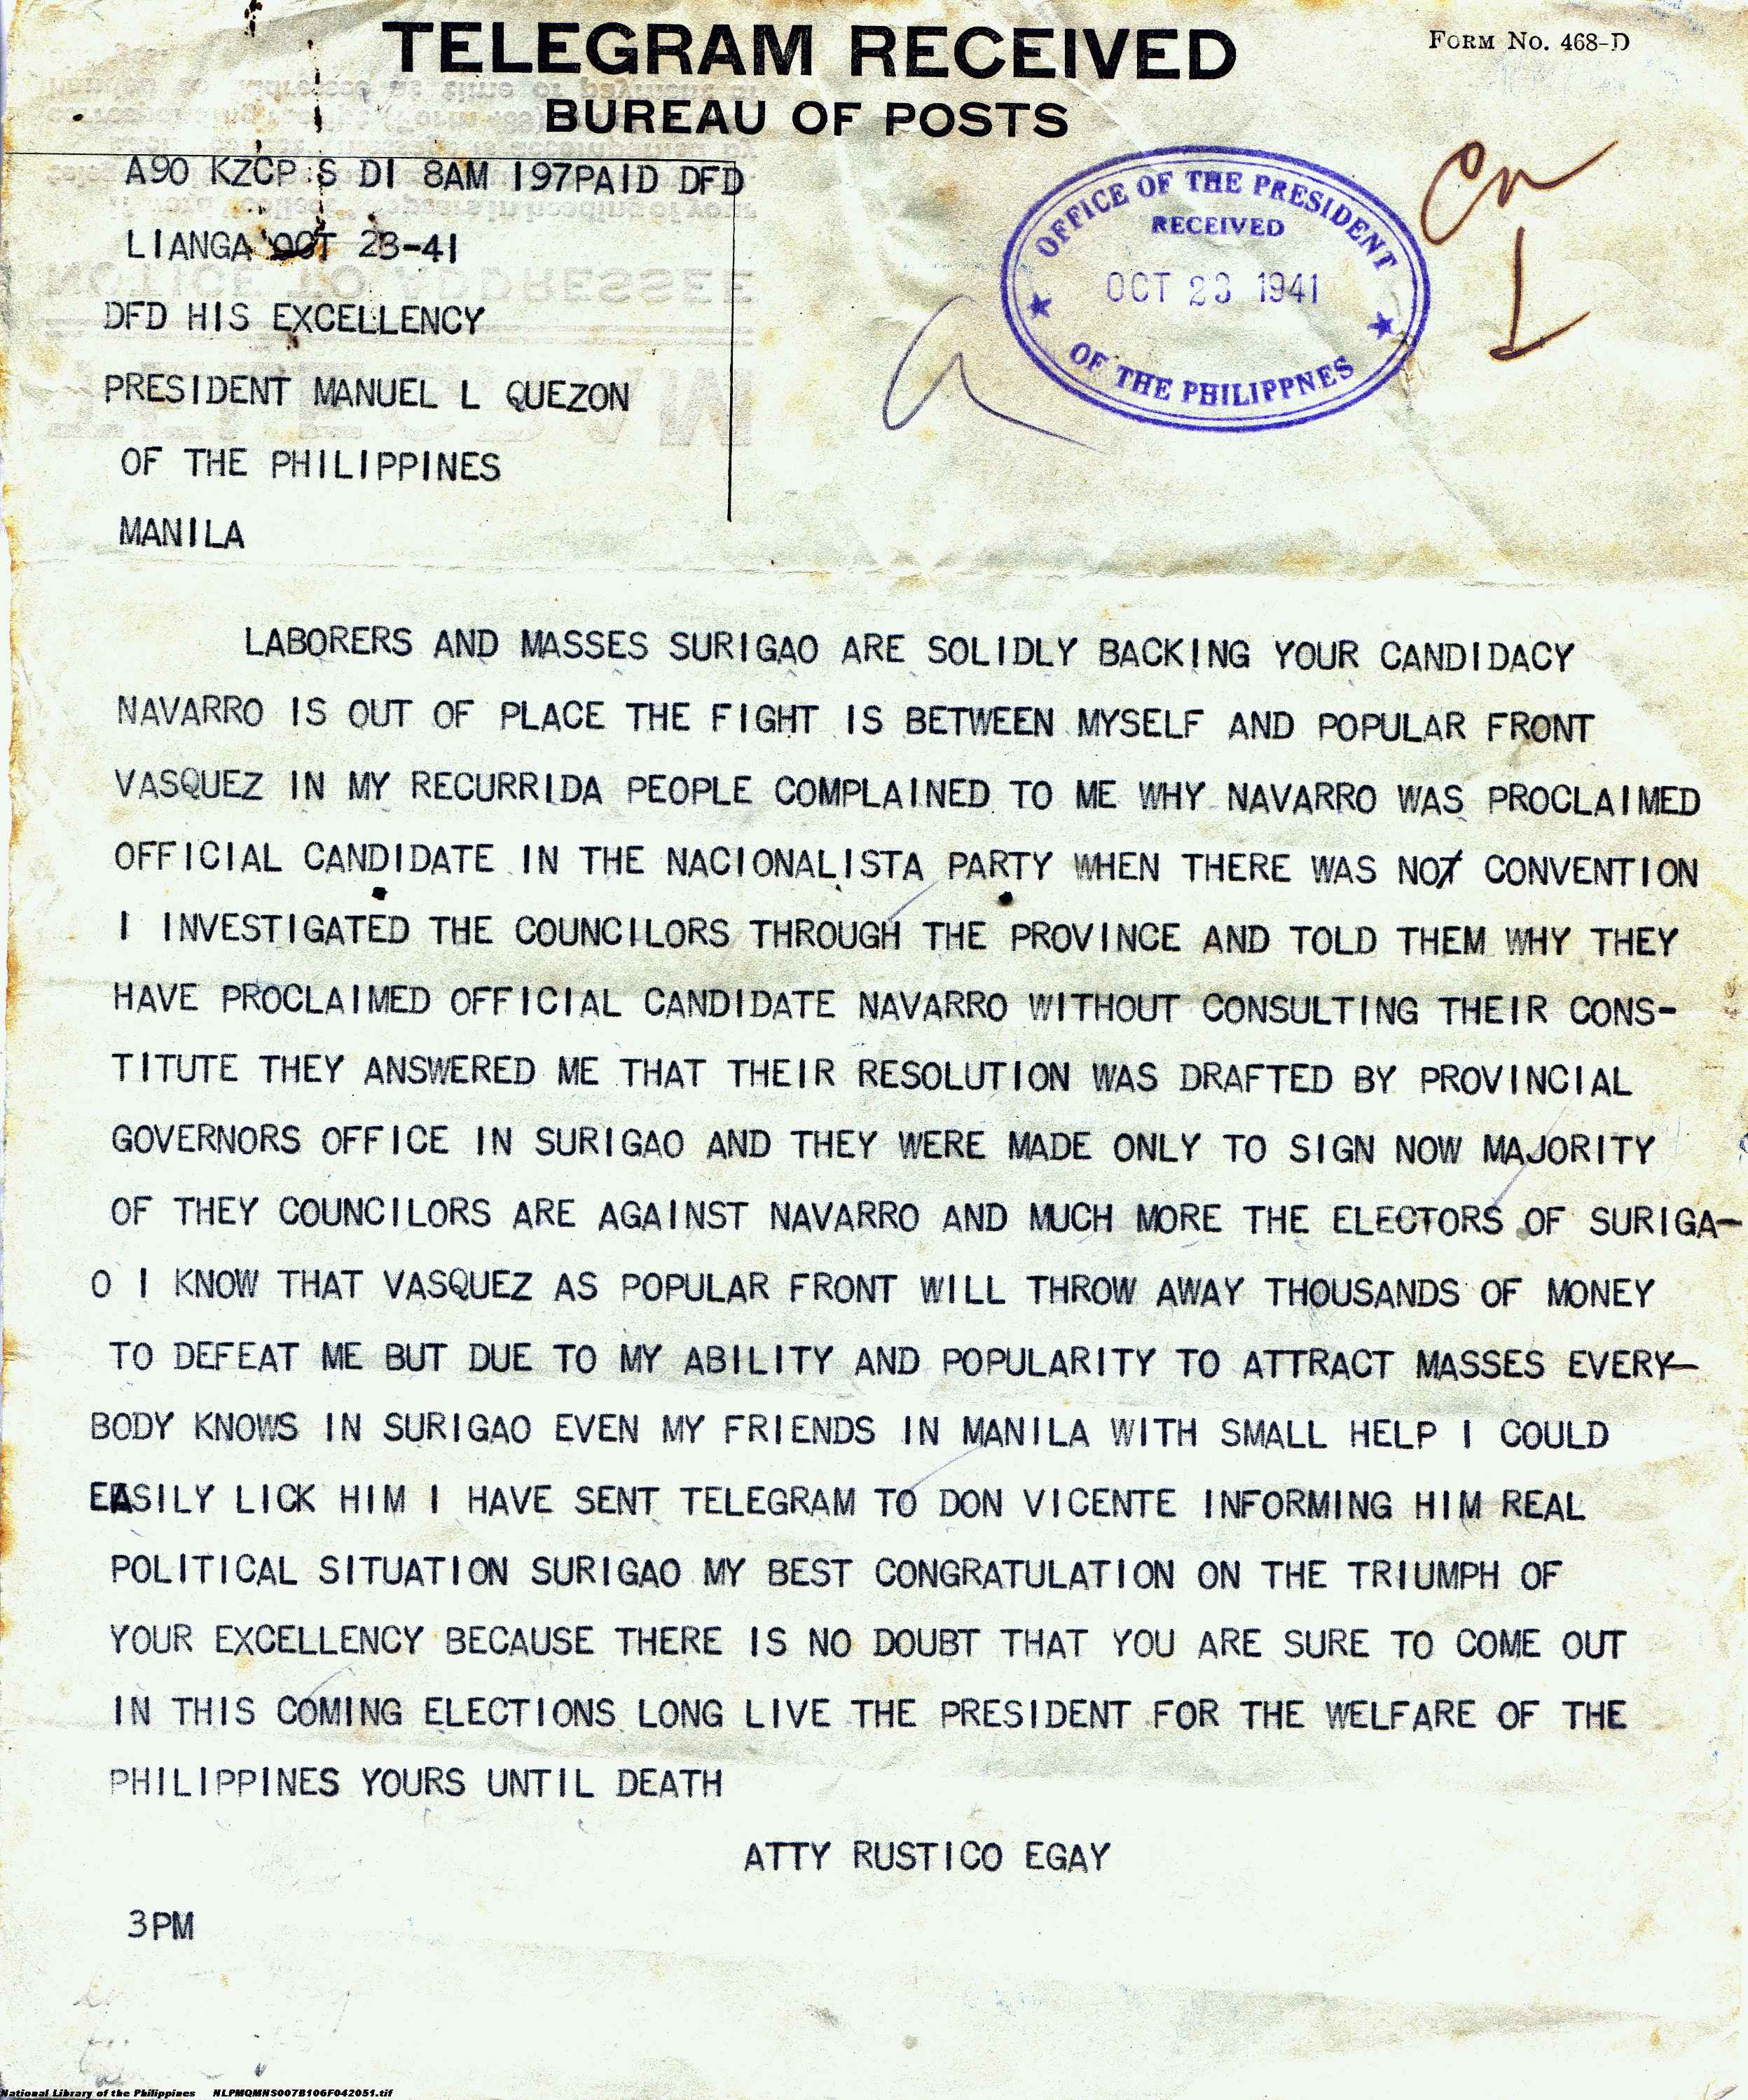 TELEGRAM RECEIVED
FORM NO. 468-D
BUREAU OF POSTS
A90 KZCP S DI 8AM 197PAID DFD
LIANGA OCT 23-41
DFD HIS EXCELLENCY
PRESIDENT MANUEL L QUEZON
OF THE PHILIPPINES
MANILA
OFFICE OF THE PRESIDENT
RECEIVED
OCT 23 1941
OF THE PHILIPPNES
LABORERS AND MASSES SURIGAO ARE SOLIDLY BACKING YOUR CANDIDACY
NAVARRO IS OUT OF PLACE THE FIGHT IS BETWEEN MYSELF AND POPULAR FRONT
VASQUEZ IN MY RECURRIDA PEOPLE COMPLAINED TO ME WHY NAVARRO WAS PROCLAIMED
OFFICIAL CANDIDATE IN THE NACIONALISTA PARTY WHEN THERE WAS NO CONVENTION
I INVESTIGATED THE COUNCILORS THROUGH THE PROVINCE AND TOLD THEM WHY THEY
HAVE PROCLAIMED OFFICIAL CANDIDATE NAVARRO WITHOUT CONSULTING THEIR CONS-
TITUTE THEY ANSWERED ME THAT THEIR RESOLUTION WAS DRAFTED BY PROVINCIAL
GOVERNORS OFFICE IN SURIGAO AND THEY WERE MADE ONLY TO SIGN NOW MAJORITY
OF THEY COUNCILORS ARE AGAINST NAVARRO AND MUCH MORE THE ELECTORS OF SURIGA-
O I KNOW THAT VASQUEZ AS POPULAR FRONT WILL THROW AWAY THOUSANDS OF MONEY
TO DEFEAT ME BUT DUE TO MY ABILITY AND POPULARITY TO ATTRACT MASSES EVERY-
BODY KNOWS IN SURIGAO EVEN MY FRIENDS IN MANILA WITH SMALL HELP I COULD
EASILY LICK HIM I HAVE SENT TELEGRAM TO DON VICENTE INFORMING HIM REAL
POLITICAL SITUATION SURIGAO MY BEST CONGRATULATION ON THE TRIUMPH OF
YOUR EXCELLENCY BECAUSE THERE IS NO DOUBT THAT YOU ARE SURE TO COME OUT
IN THIS COMING ELECTIONS LONG LIVE THE PRESIDENT FOR THE WELFARE OF THE
PHILIPPINES YOURS UNTIL DEATH
ATTY RUSTICO EGAY
3PM
National Library of the Philippines NLPMQMNS007B106F042051.tif